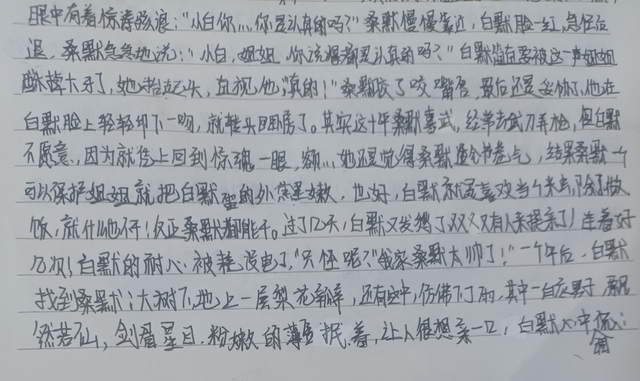 眼中有着惊涛骇浪："小白你…你是认真的吗？"桑默慢慢靠近，白默脸一红，急忙后
退，桑默急急地说："小白，姐姐，你说得都是认真的吗？"白默简直要被这一声姐姐
酥掉大牙了，她抬起头，直视他"真的！"桑默咬了咬嘴唇，最后还是妥协了，他在
白默脸上轻轻印下一吻，就转头回房了。其实这十年桑默喜武，经常去武刀弄枪，但白默
不愿意，因为就凭上回到惊魂一眼，额…她还觉得桑默适合书卷气，结果桑默一个
可以保护姐姐就把白默的外焦里嫩，也好，白默就喜欢当个米虫，除了做
饭，就什么也不行！反正桑默都能干。过了几天，白默又发愁了双又叒有人来提亲了！连着好
几次！白默的耐心被耗没电了，"只怪呢？我家桑默太帅了！"一个年后，白默
找到桑默；大树下，地上一层梨花瓣，还有空中，仿佛下了雨，其中一白衣男子飘
然若仙，剑眉星目，粉嫩的薄唇抿着，让人很想亲一口，白默心中流入：